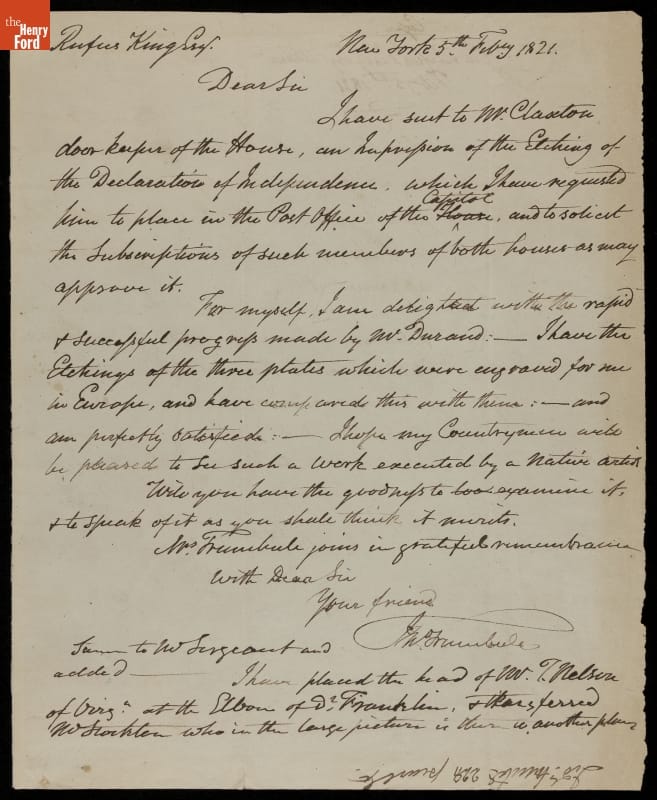 the
Henry
Ford
Rufus King Esqr.
New York 5th. Feby 1821.
Dear Sir
I have sent to Mr. Claxton
door keeper of the House, an Impression of the Etching of
the Declaration of Independence, which I have requested
Capitol
him to place in the Post Office of the House, and to solicit
the Subscriptions of such members of both houses as may
approve it.
For myself, I am delighted with the rapid
& successful progress made by Mr. Durand: — I have the
Etchings of the three plates which were engraved for me
in Europe, and have compared this with them: — and
am perfectly satisfied: — I hope my Countrymen will
be pleased to see such a work executed by a Native artist
Will you have the goodness to examine it,
& to speak of it as you shall think it merits.
Mrs Trumbull joins in grateful remembrance
with Dear Sir
Your friend
Jno Trumbull
Same to Mr Sergeant and
added —
I have placed the head of Mr. T. Nelson
of Virga. at the Elbow of Dr. Franklin, & transferred
Mr Stockton who in the large picture is there to another place